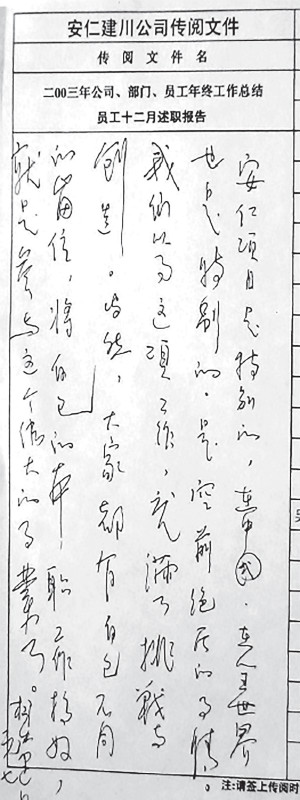 安仁建川公司传阅文件
传阅文件名
二00三年公司、部门、员工年终工作总结
员工十二月述职报告
安仁项目是特别的，在中国．在全世界
也是特别的．是空前绝后的事情。
我们的这项工作，充满了挑战与
创造。当然，大家都有自己不同
的岗位，将自己的本职工作搞好，
就是参与这个伟大的事业了。
注：请签上传阅时